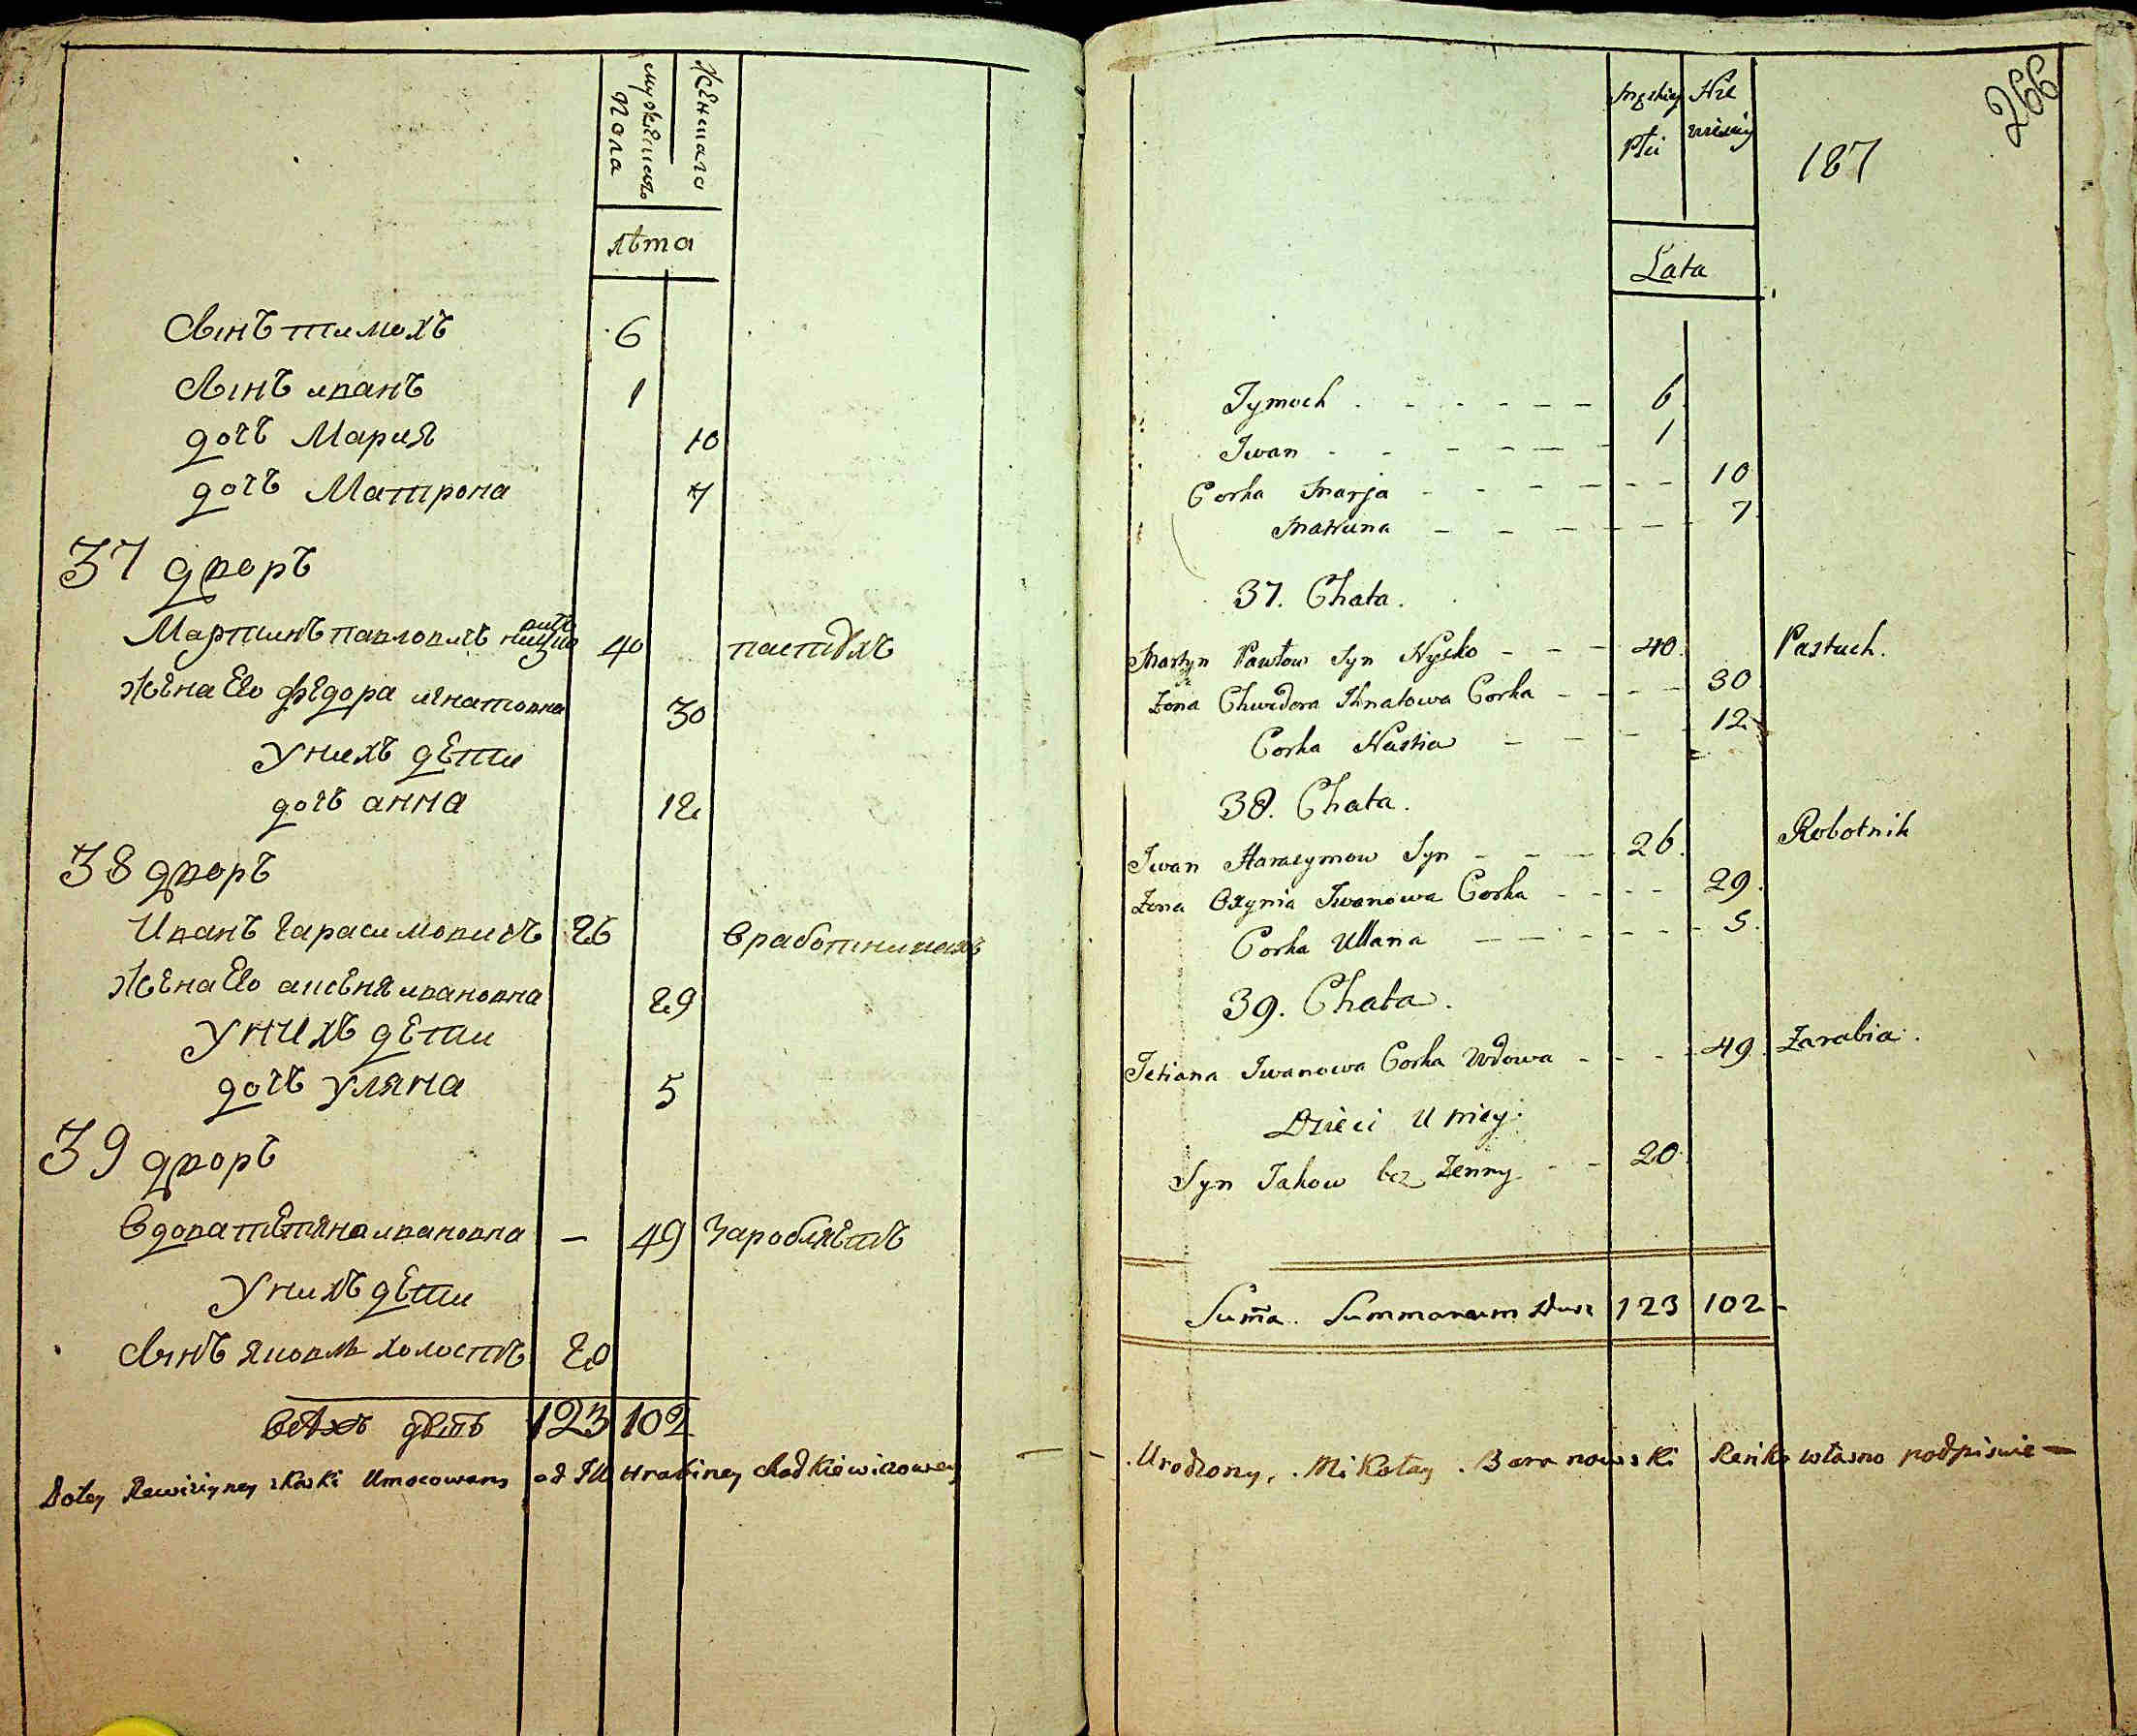 мужескаго
Пола
женскаго
лѣта
Сынъ тимохъ 6
Сынъ иванъ 1
дочь Мария 10
дочь Матрона 7
37 дворъ
Мартинъ павловичъ 40 пастухъ
жена Его федора игнатовна 30
У нихъ дети
дочь анна 12
38 дворъ
Иванъ гарасимовичъ 26 в работникахъ
Жена Его аксеня ивановна 29
У нихъ дети
дочь уляна 5
39 дворъ
вдова тетяна ивановна — 49 заробляетъ
У нихъ дети
Сынъ яковъ холостъ 20
всѣхъ 123 102
Do tey Rewizyney skaski Umocowany od JW Hrabiney Chodkiewiczowey —
266
187
męskiey Nie
Płci wieściey
Lata
Tymoch 6
Iwan 1
Corka Marja 10
Matruna 7
37. Chata.
Martyn Pawłow Syn Nyćko 40. Pastuch.
Zona Chwedora Ihnatowa Corka 30
Corka Nastia 12
38. Chata.
Iwan Harasymow Syn 26. Robotnik
Zona Oxynia Iwanowa Corka 29.
Corka Ullana 5.
39. Chata.
Tetiana Iwanowa Corka Wdowa 49. Zarabia.
Dzieci u niey.
Syn Jakow bez Zenny 20.
Sum̃a. Summarum Dusz 123 102
Urodzony, Mikołay Baranowski Ręnko własno podpisuie —